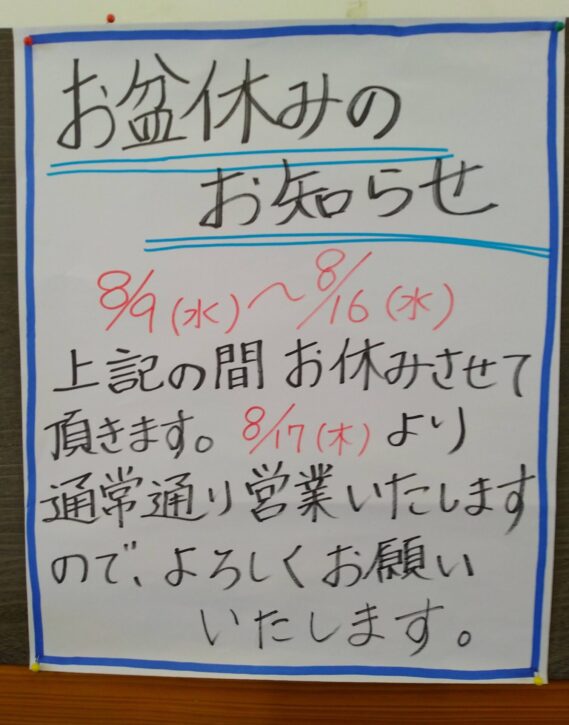 お盆休みの
お知らせ
8/9(水)～8/16(水)
上記の間 お休みさせて
頂きます。8/17(木)より
通常通り営業いたします
ので、よろしくお願い
いたします。